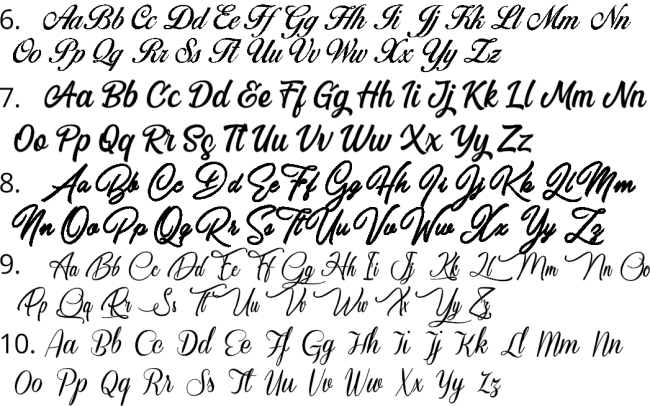 6. Aa Bb Cc Dd Ee Ff Gg Hh Ii Jj Kk Ll Mm Nn
Oo Pp Qq Rr Ss Tt Uu Vv Ww Xx Yy Zz
7. Aa Bb Cc Dd Ee Ff Gg Hh Ii Jj Kk Ll Mm Nn
Oo Pp Qq Rr Ss Tt Uu Vv Ww Xx Yy Zz
8. Aa Bb Cc Dd Ee Ff Gg Hh Ii Jj Kk Ll Mm
Nn Oo Pp Qq Rr Ss Tt Uu Vv Ww Xx Yy Zz
9. Aa Bb Cc Dd Ee Ff Gg Hh Ii Jj Kk Ll Mm Nn Oo
Pp Qq Rr Ss Tt Uu Vv Ww Xx Yy Zz
10. Aa Bb Cc Dd Ee Ff Gg Hh Ii Jj Kk Ll Mm Nn
Oo Pp Qq Rr Ss Tt Uu Vv Ww Xx Yy Zz